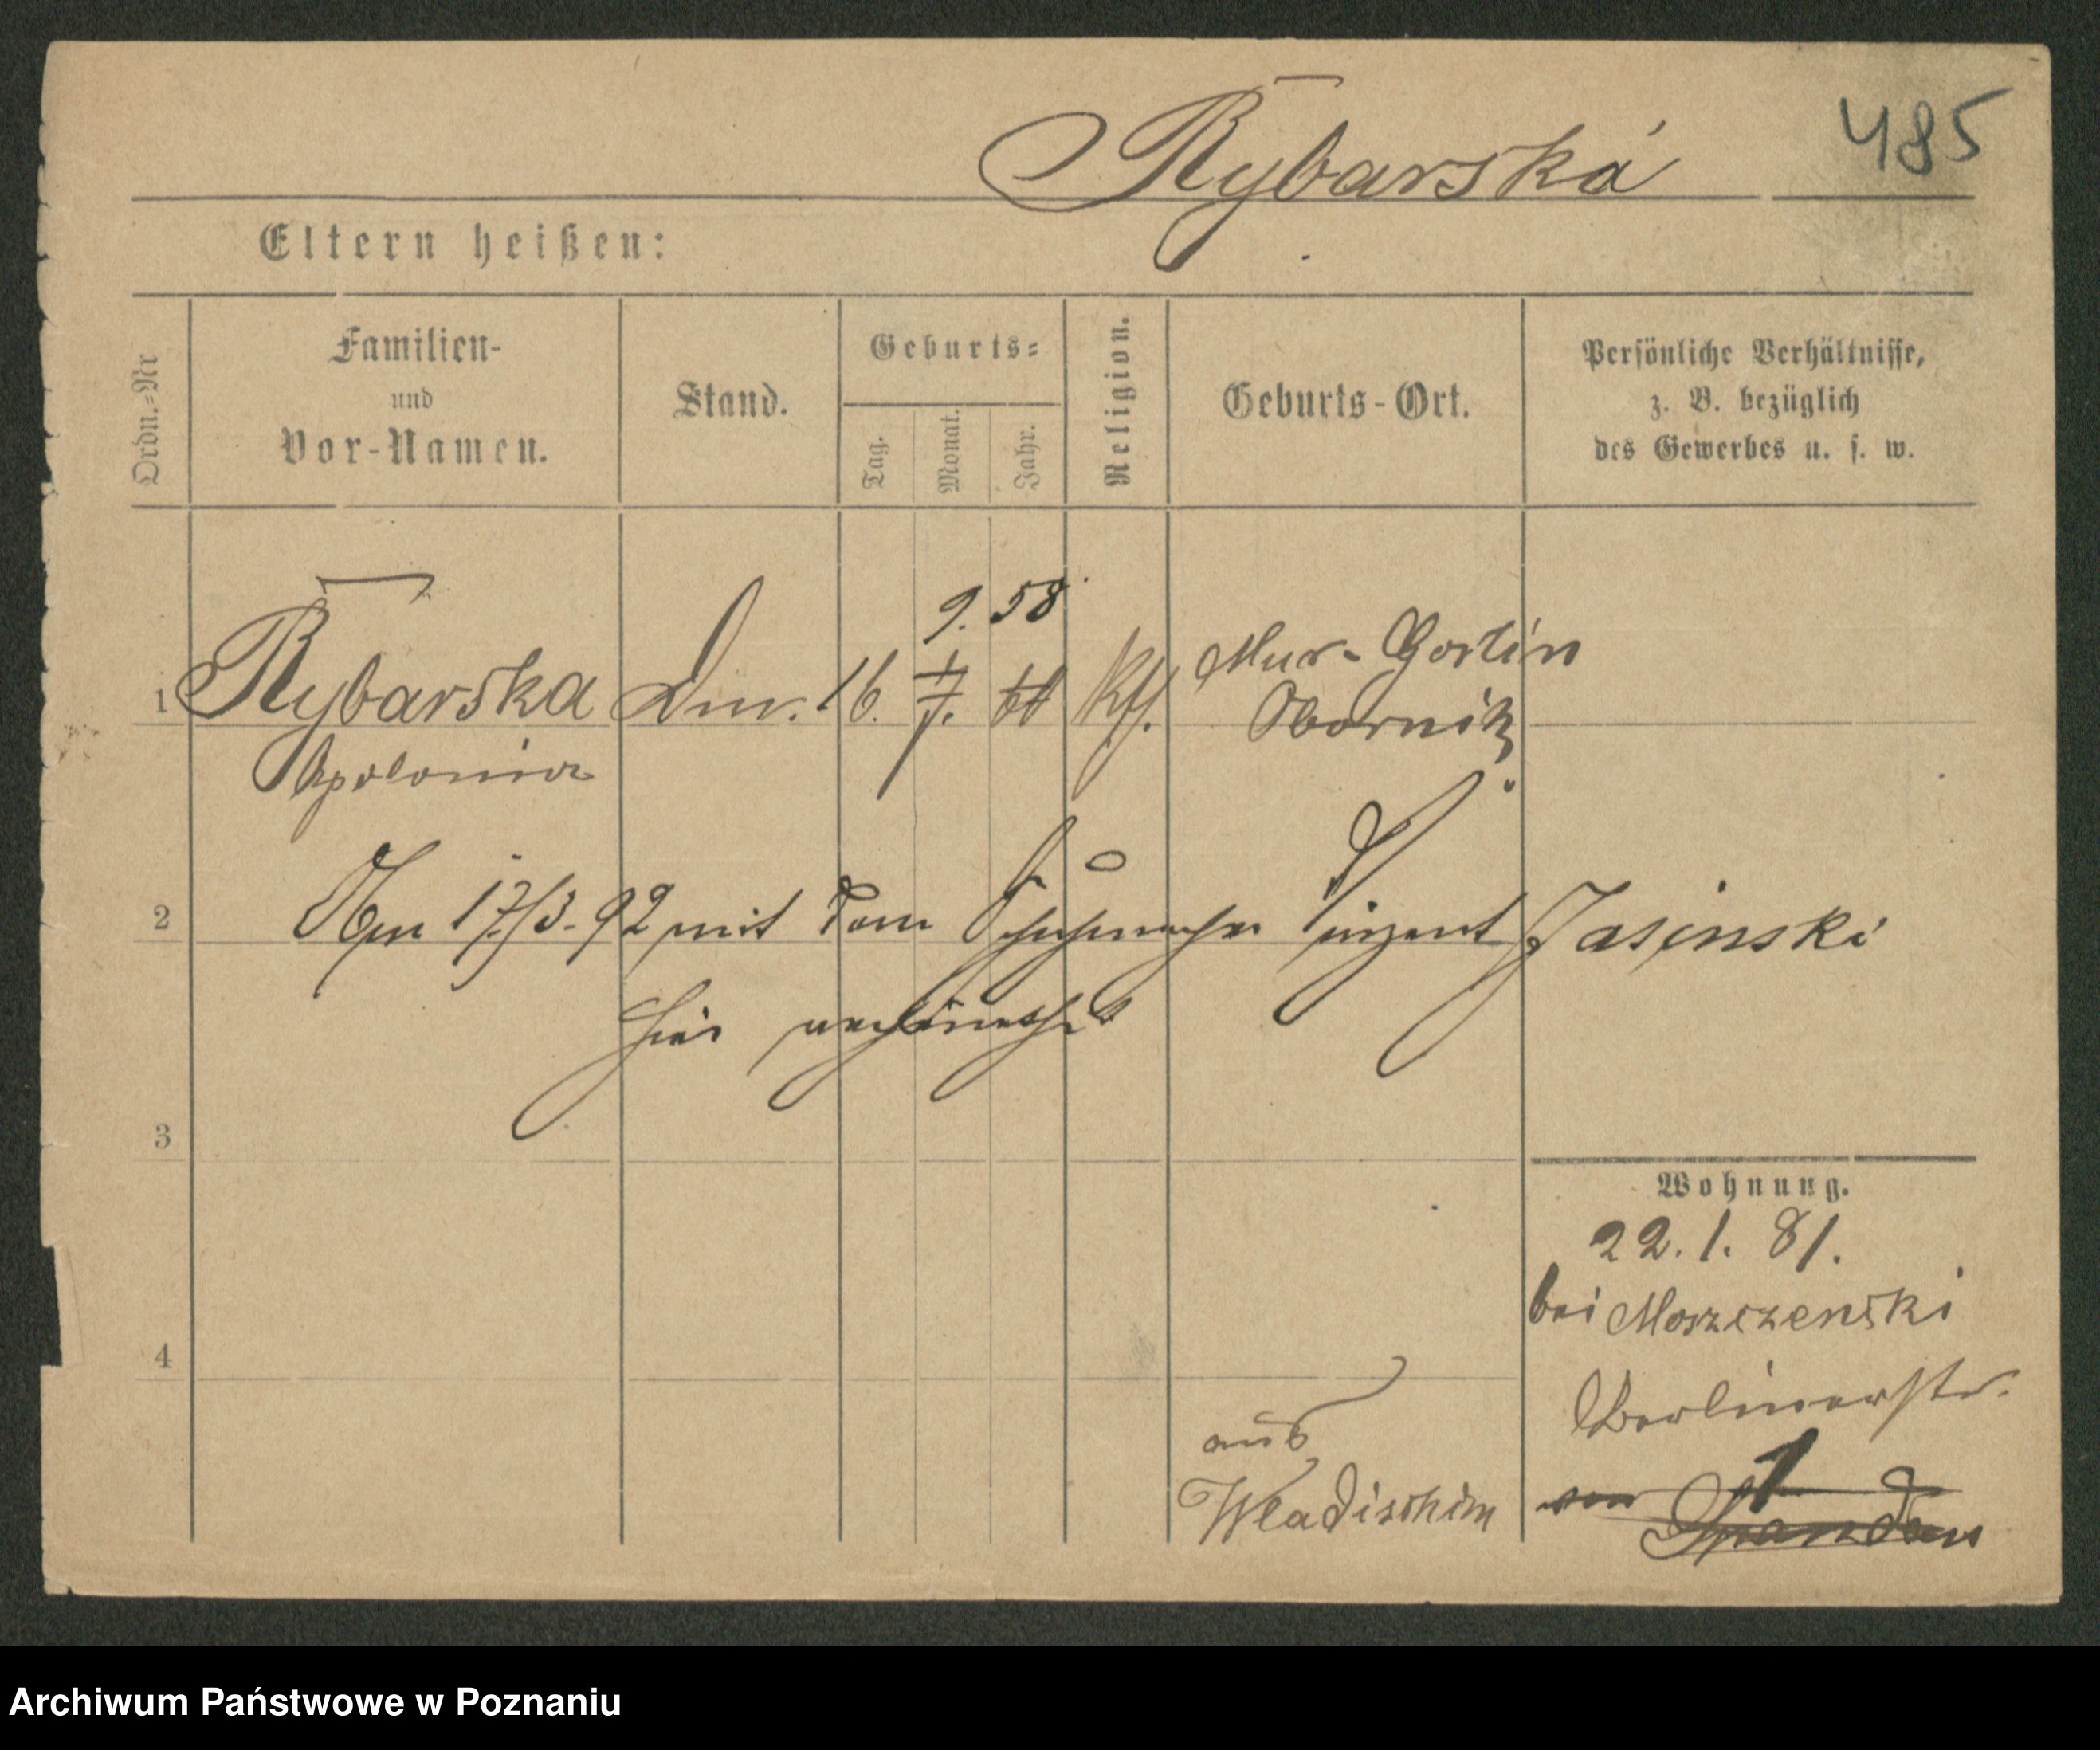 Rybarska
485
Eltern heißen:
Ordn.-Nr
Familien-
und
Vor-Namen.
Stand.
Geburts-
Tag.
Monat.
Jahr.
Religion.
Geburts-Ort.
Persönliche Verhältnisse,
z. B. bezüglich
des Gewerbes u. s. w.
9. 58
1 Rybarska 16. 7. Kth. Mur-Goslin
Apolonia Obornik
2 Am 17/3.92 mit dem Schuhmacher Vinzent Jasinski
hier verheirathet
3
Wohnung.
22. 1. 81.
bei Moszczenski
4
Berlinerstr.
1
aus
Wladischin
von Spandau
Archiwum Państwowe w Poznaniu